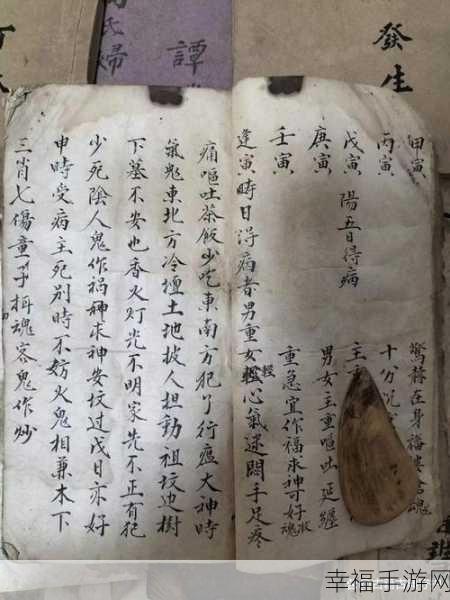 發生
譚
氏婦
甲寅 驚赫在身
丙寅 十分沉
戊寅 陽五日得病 主
庚寅 男女主重嘔吐延纏
壬寅 重急宜作福求神可好
逢寅時日得病者男重女輕心氣迷悶手足疼
痛嘔吐茶飯少吃東南方犯了行瘟大神時
氣鬼東北方冷壇土地披人担動祖坟边樹
下墓不安也香火灯光不明家先不正有犯
少死陰人鬼作祸求神安坟过戊日亦好
申時受病主死别時不妨火鬼相兼木下
三肖七傷童子枉魂客鬼作炒
幸福手游网